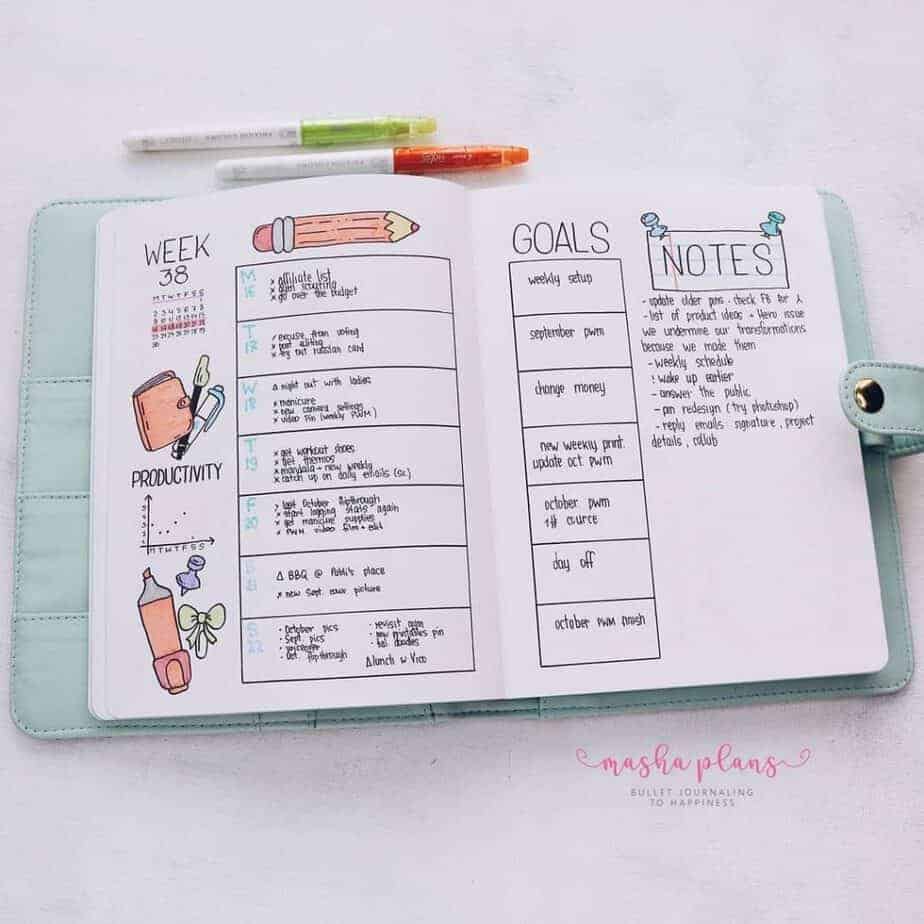 WEEK
38
M T W T F S S
1
2 3 4 5 6 7 8
9 10 11 12 13 14 15
16 17 18 19 20 21 22
23 24 25 26 27 28 29
30
PRODUCTIVITY
M T W T F S S
M
16
x affiliate list
x go over the budget
T
17
excuse from voting
x post editing
x try out russian card
W
18
Δ night out with ladies
x manicure
x new camera settings
x video pin (weekly PWM)
T
19
x get workout shoes
x get thermos
x mandala + new weekly
x catch up on daily emails
F
20
last October flipthrough
x start logging stats again
x get manicure supplies
x PWM video film + edit
S
21
Δ BBQ @ place
x new Sept. picture
S
22
• October pics
• Sept. pics
• Oct. flipthrough
• revisit
• new printables pin
• doodles
Δ lunch w Vico
GOALS
weekly setup
september pwm
change money
new weekly print.
update oct pwm
october pwm
1# cource
day off
october pwm finish
NOTES
- update older pins - check FB for
- list of product ideas + Hero issue
we undermine our transformations
because we made them
- weekly schedule
! wake up earlier
- answer the public
- pin redesign (try photoshop)
- reply emails signature, project
details, collab
masha plans
BULLET JOURNALING
TO HAPPINESS